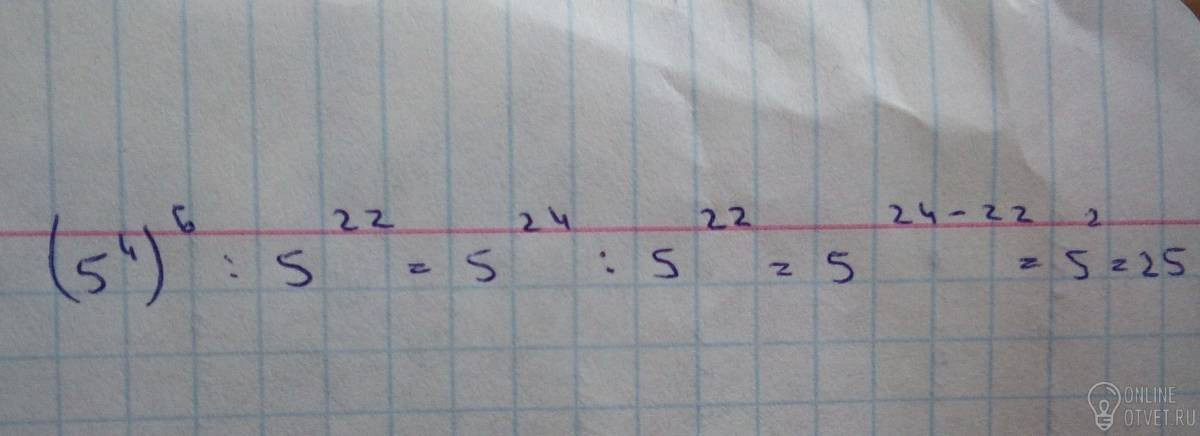 (5⁴)⁶ : 5²² = 5²⁴ : 5²² = 5²⁴⁻²² = 5² = 25
ONLINE
OTVET.RU